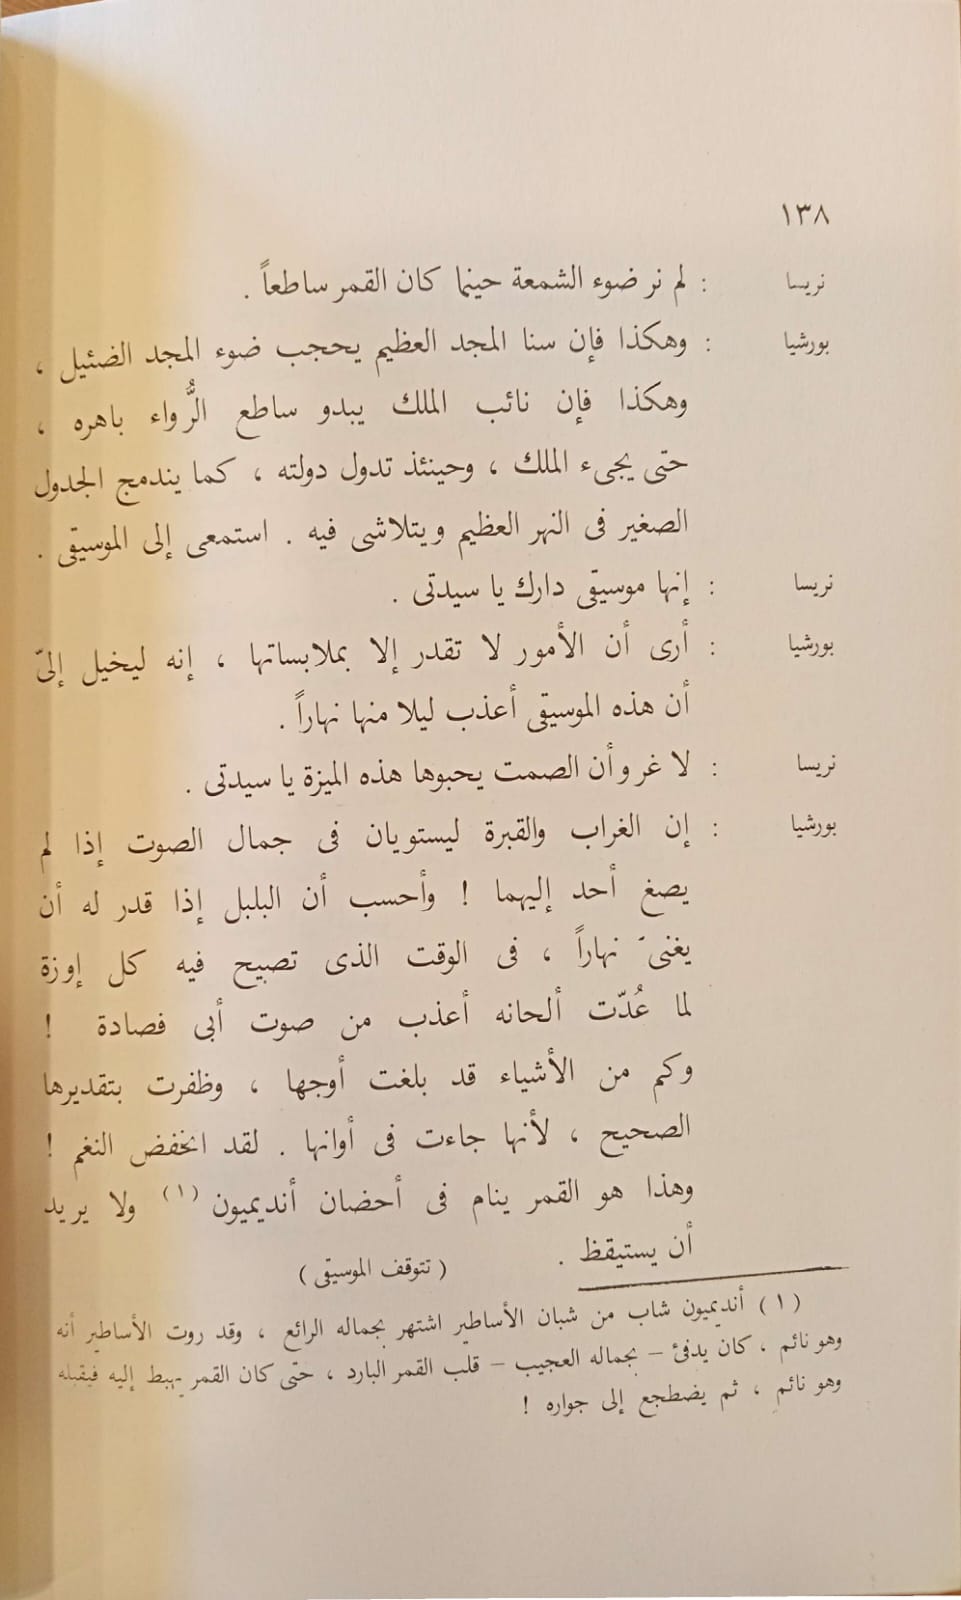 ١٣٨
نريسا : لم نر ضوء الشمعة حينما كان القمر ساطعاً .
بورشيا : وهكذا فإن سنا المجد العظيم يحجب ضوء المجد الضئيل ،
وهكذا فإن نائب الملك يبدو ساطع الرُّواء باهره ،
حتى يجىء الملك ، وحينئذ تدول دولته ، كما يندمج الجدول
الصغير فى النهر العظيم ويتلاشى فيه . استمعى إلى الموسيقى .
نريسا : إنها موسيقى دارك يا سيدتى .
بورشيا : أرى أن الأمور لا تقدر إلا بملابساتها ، إنه ليخيل إلىّ
أن هذه الموسيقى أعذب ليلا منها نهاراً .
نريسا : لا غرو أن الصمت يحبوها هذه الميزة يا سيدتى .
بورشيا : إن الغراب والقبرة ليستويان فى جمال الصوت إذا لم
يصغ أحد إليهما ! وأحسب أن البلبل إذا قدر له أن
يغنىَ نهاراً ، فى الوقت الذى تصيح فيه كل إوزة
لما عُدّت ألحانه أعذب من صوت أبى فصادة !
وكم من الأشياء قد بلغت أوجها ، وظفرت بتقديرها
الصحيح ، لأنها جاءت فى أوانها . لقد انخفض النغم !
وهذا هو القمر ينام فى أحضان أنديميون (١) ولا يريد
أن يستيقظ . ( تتوقف الموسيقى )
(١) أنديميون شاب من شبان الأساطير اشتهر بجماله الرائع ، وقد روت الأساطير أنه
وهو نائم ، كان يدفئ – بجماله العجيب – قلب القمر البارد ، حتى كان القمر يهبط إليه فيقبله
وهو نائم ، ثم يضطجع إلى جواره !